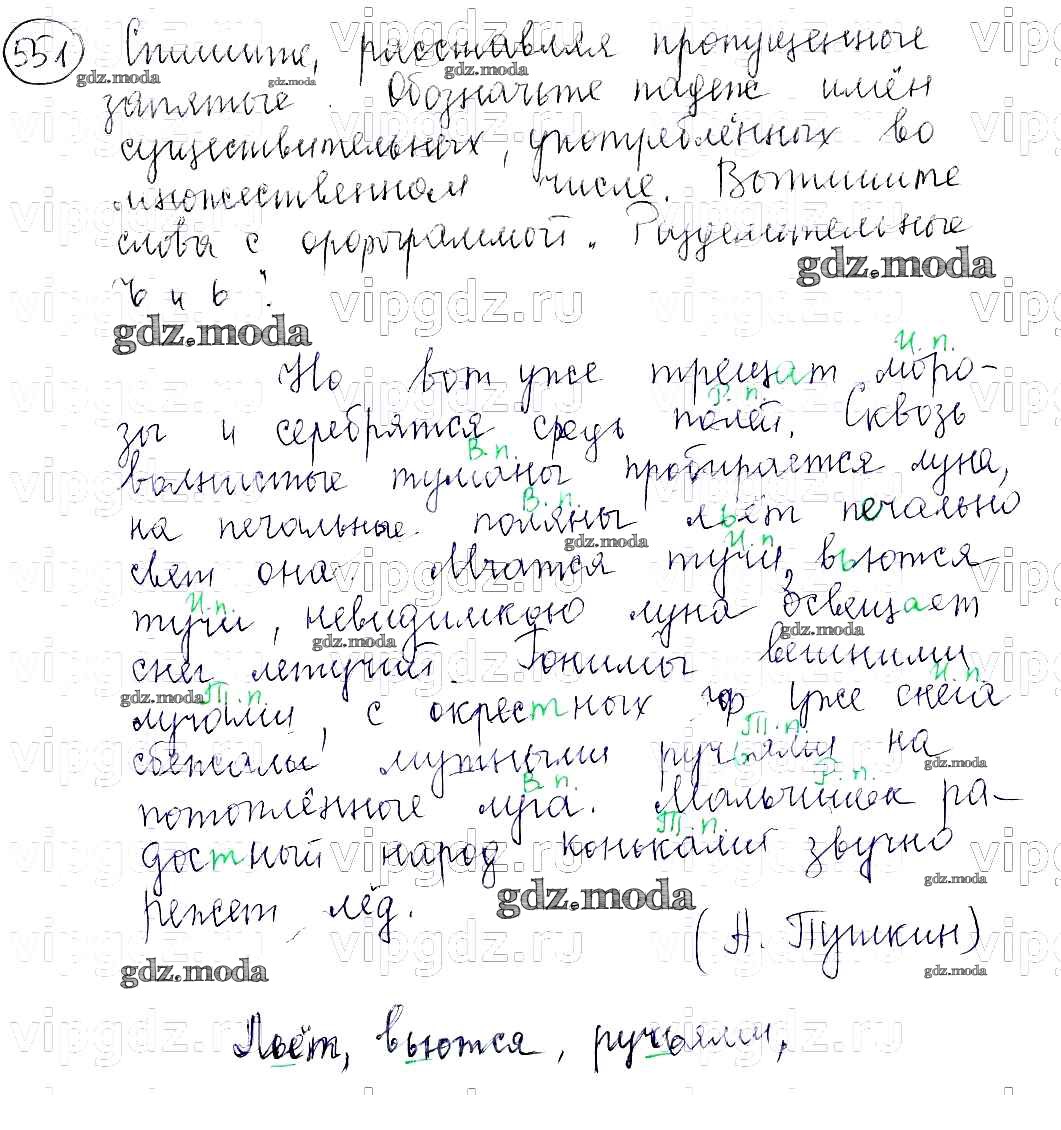 551 Спишите, расставляя пропущенные
запятые. Обозначьте падеж имён
существительных, употреблённых во
множественном числе. Выпишите
слова с орфограммой „Разделительные
ъ и ь".
И. п.
Но вот уже трещат моро-
Р. п.
зы и серебрятся средь полей. Сквозь
В. п.
волнистые туманы пробирается луна,
В. п.
на печальные поляны льёт печально
И. п.
свет она. Мчатся тучи, вьются
И. п.
тучи, невидимкою луна освещает
снег летучий. Гонимы вешними
Т. п. И. п.
лучами, с окрестных гор уже снега
Т. п.
сбежали мутными ручьями на
В. п. Р. п.
потоплённые луга. Мальчишек ра-
Т. п.
достный народ коньками звучно
режет лёд.
(А. Пушкин)
Льёт, вьются, ручьями,
vipgdz.ru
gdz.moda